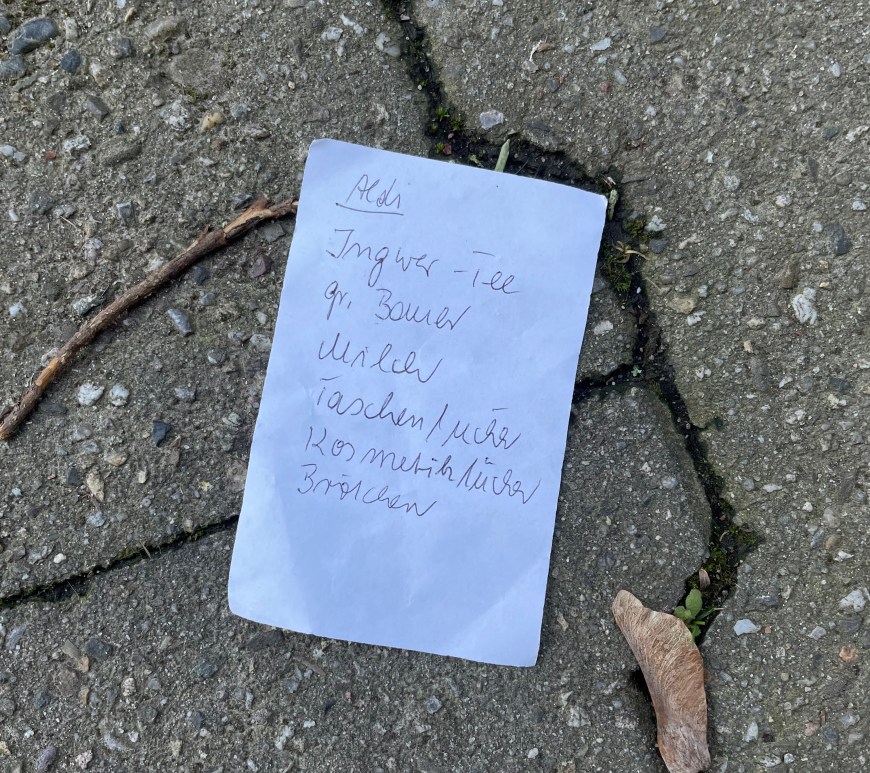 Aldi
Ingwer-Tee
gr. Bohnen
Milch
Taschentücher
Kosmetiktücher
Brötchen